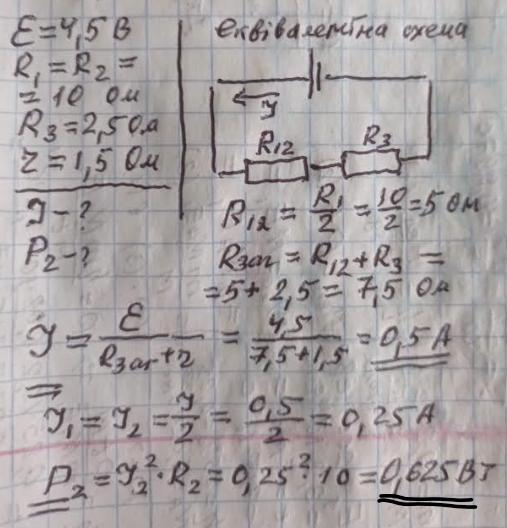 E=4,5 В
R₁=R₂=
=10 Ом
R₃=2,5 Ом
r=1,5 Ом
J-?
P₂-?
еквівалентна схема
J
R₁₂
R₃
R₁₂=R₁/2=10/2=5 Ом
Rзаг=R₁₂+R₃=
=5+2,5=7,5 Ом
J=E/(Rзаг+r)=4,5/(7,5+1,5)=0,5 А
J₁=J₂=J/2=0,5/2=0,25 А
P₂=J₂²·R₂=0,25²·10=0,625 Вт